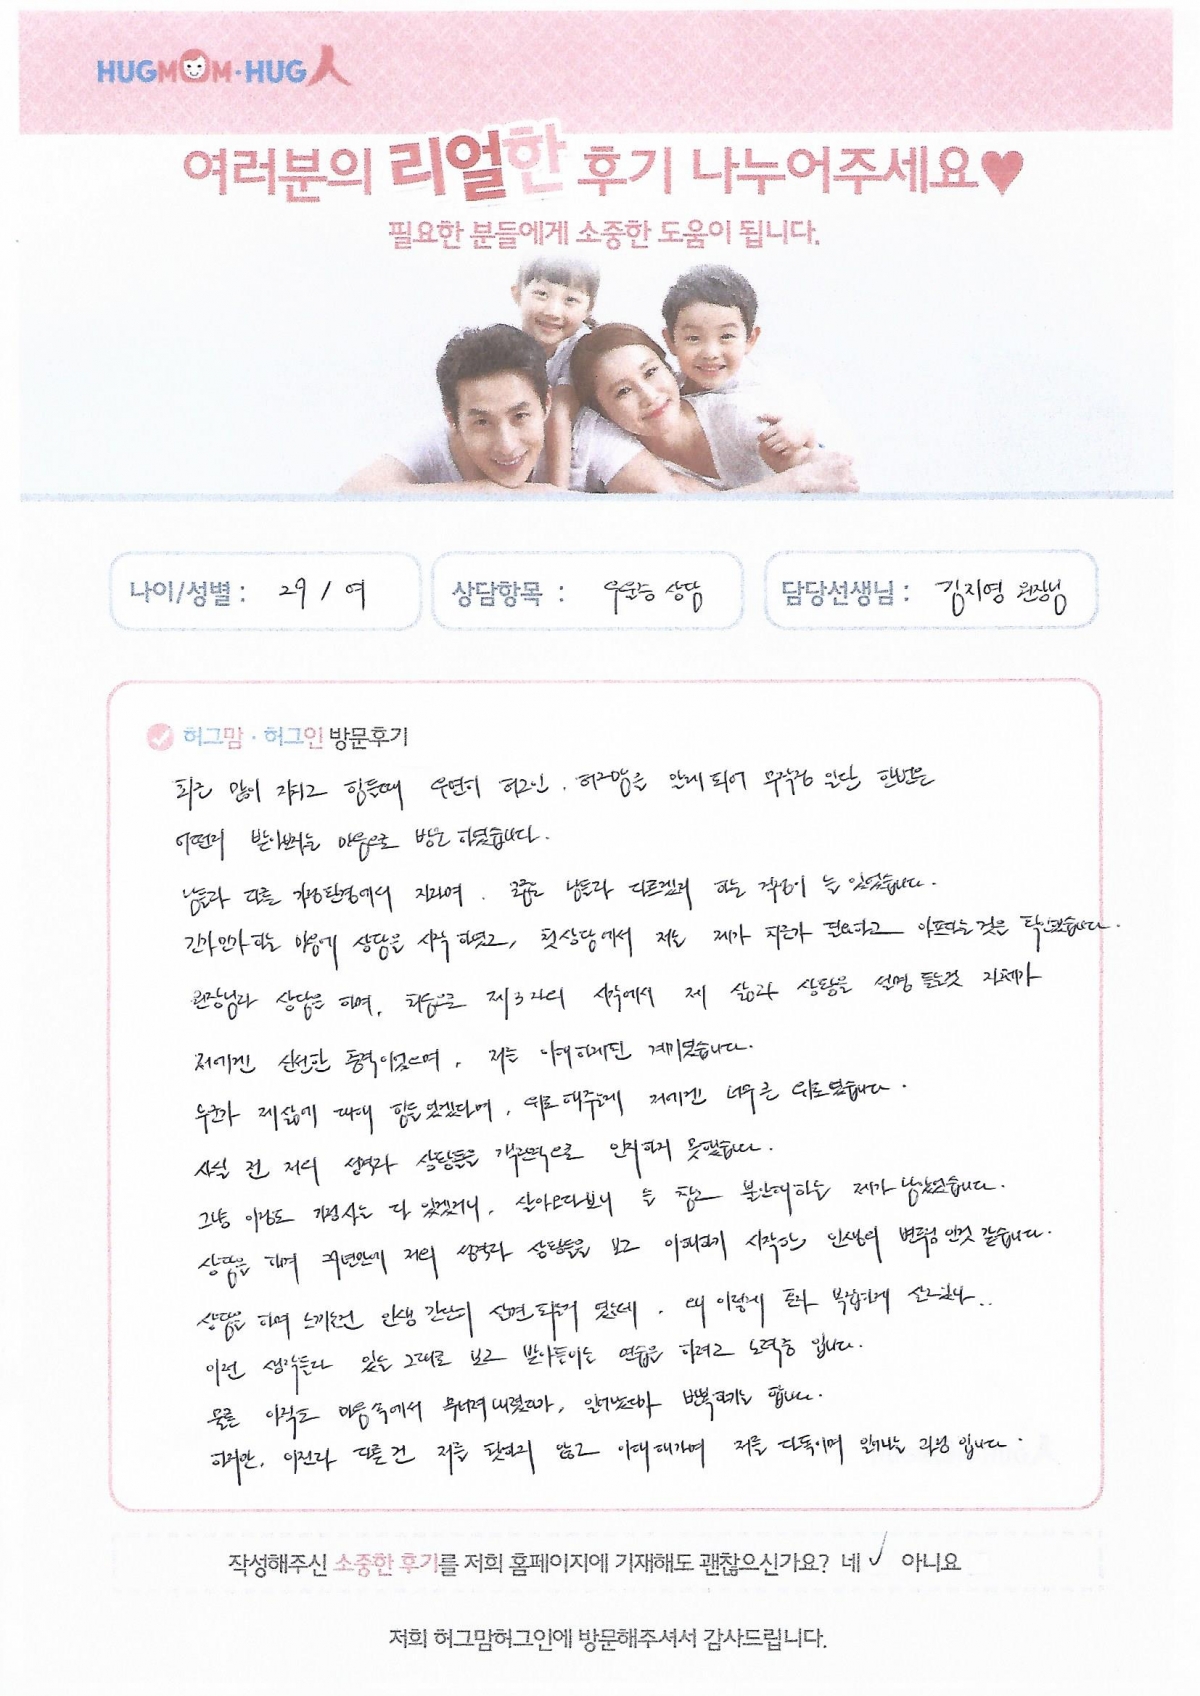 HUGMOM·HUG人
여러분의 리얼한 후기 나누어주세요♥
필요한 분들에게 소중한 도움이 됩니다.
나이/성별 : 29 / 여
상담항목 : 우울증 상담
담당선생님 : 김지영 원장님
허그맘·허그인 방문후기
최근 많이 지치고 힘들때 우연히 허그인. 허그맘을 알게 되어 무작정 일단 한번은
어떤지 받아보자는 마음으로 방문 하였습니다.
남들과 다른 가정환경에서 자라며, 남들과 다르겠지 하는 걱정이 늘 있었습니다.
긴가민가하는 마음에 상담을 시작 하였고, 첫상담에서 저는 제가 치료가 필요하고 아프다는 것을 확인했습니다.
원장님과 상담을 하며, 처음으로 제3자의 시각에서 제 삶과 상황을 설명 듣는것 자체가
저에겐 신선한 충격이었으며, 저를 이해하게된 계기였습니다.
누군가 제삶에 대해 힘들었겠다며, 위로해주는게 저에겐 너무 큰 위로였습니다.
사실 전 저의 성격과 상황들을 객관적으로 인지하지 못했습니다.
그냥 이정도 가정사는 다 있겠거니, 살아오다보니 늘 참고 불안해하는 제가 남았었습니다.
상담을 하며 저의 성격과 상황들을 보고 이해하기 시작한, 인생의 변환점 인것 같습니다.
상담을 하며 느끼는건 인생 간단히 살면 되는거 였는데, 왜 이렇게 혼자 복잡하게 살고있나..
이런 생각들과 있는 그대로 보고 받아들이는 연습을 하려고 노력중 입니다.
물론 아직도 마음속에서 무너져내렸다가, 일어났다가 반복하기는 합니다.
하지만, 이전과 다른건 저를 탓하지 않고 이해해가며 저를 다독이며 일어나는 과정 입니다.
작성해주신 소중한 후기를 저희 홈페이지에 기재해도 괜찮으신가요? 네 ✓ 아니요
저희 허그맘허그인에 방문해주셔서 감사드립니다.